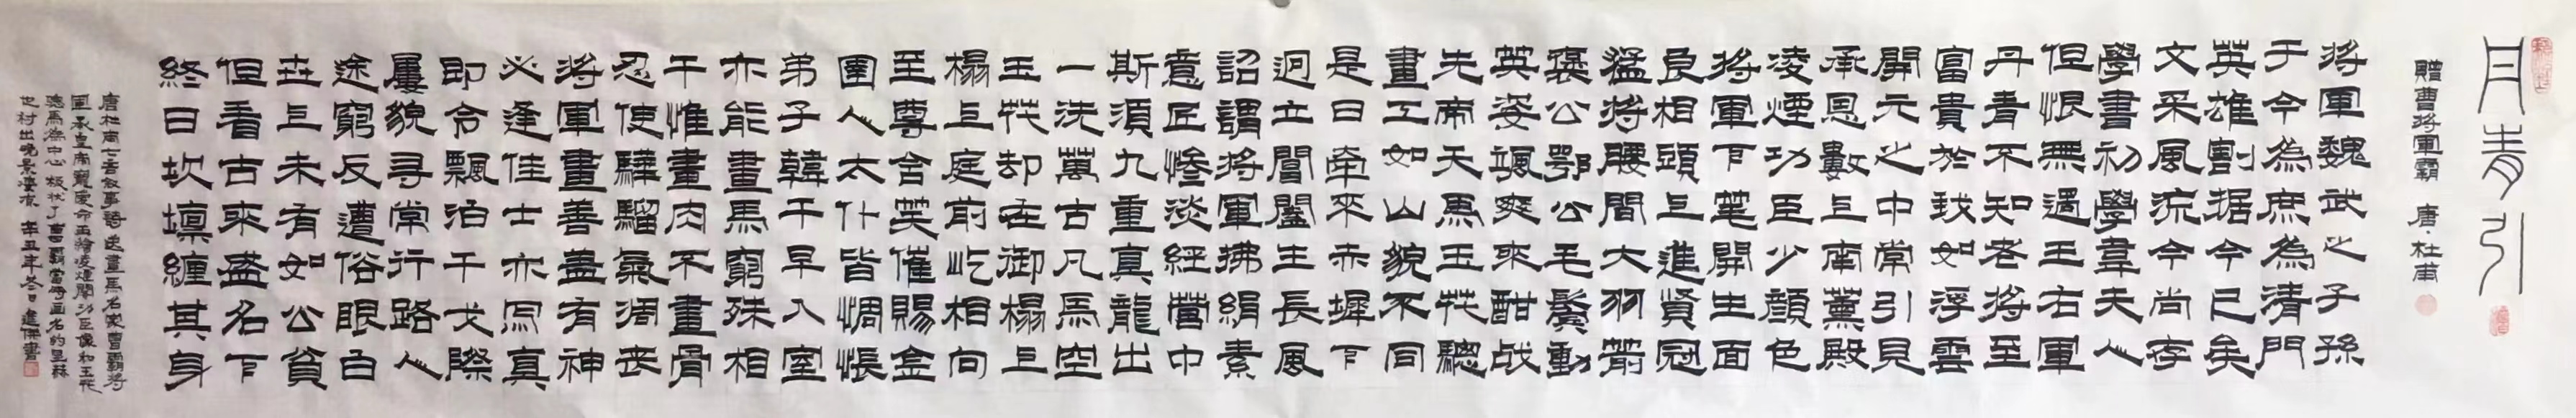 丹青引
贈曹將軍霸 唐·杜甫
將軍魏武之子孫
于今為庶為清門
英雄割据今已矣
文采風流今尚存
學書初學韋夫人
但恨無過王右軍
丹青不知老將至
富貴於我如浮雲
開元之中常引見
承恩數上南薰殿
凌煙功臣少顏色
將軍下筆開生面
良相頭上進賢冠
猛將腰間大羽箭
褒公鄂公毛髮動
英姿颯爽來酣战
先帝天馬玉花驄
畫工如山貌不同
是日牽來赤墀下
迥立閶闔生長風
詔謂將軍拂絹素
意匠慘淡經營中
斯須九重真龍出
一洗萬古凡馬空
玉花却在御榻上
榻上庭前屹相向
至尊含笑催賜金
圉人太仆皆惆悵
弟子韓干早入室
亦能畫馬窮殊相
干惟畫肉不畫骨
忍使驊騮氣凋喪
將軍畫善蓋有神
必逢佳士亦寫真
即今飄泊干戈際
屢貌尋常行路人
途窮反遭俗眼白
世上未有如公貧
但看古來盛名下
終日坎壈纏其身
唐杜甫七言敘事詩送畫馬名家曹霸將
軍承皇帝寵爱命画繪凌煙閣功臣像和玉花
驄馬為中心 状了曹霸當時画名的显赫
也衬出晚景凄凉 辛丑年冬日 書